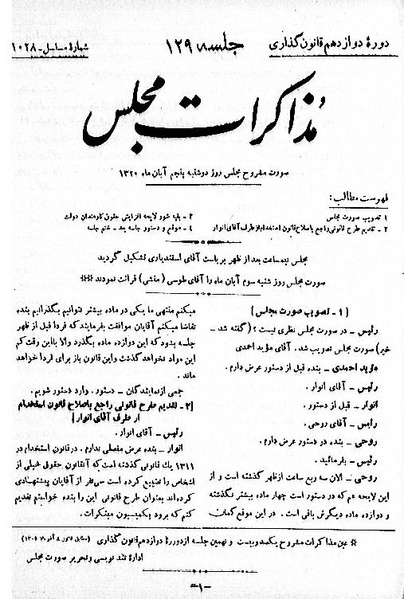 دورهٔ دوازدهم قانون گذاری
جلسه ۱۲۹
شمارهٔ مسلسل - ۱۰۲۸
مذاکرات مجلس
صورت مشروح مجلس روز دوشنبه پنجم آبان ماه ۱۳۲۰
فهرست مطالب:
۱ - تصویب صورت مجلس
۲ - تقدیم طرح قانونی راجع باصلاح قانون استخدام از طرف آقای انوار
۳ - بقیه شور لایحه افزایش حقوق کارمندان دولت
۴ - موقع و دستور جلسه بعد - ختم جلسه
مجلس سه ساعت بعد از ظهر بریاست آقای اسفندیاری تشکیل گردید
صورت مجلس روز شنبه سوم آبان ماه را آقای طوسی (منشی) قرائت نمودند
[۱ - تصویب صورت مجلس]
رئیس - در صورت مجلس نظری نیست؟ (گفته شد -
خیر) صورت مجلس تصویب شد. آقای مؤید احمدی
مؤید احمدی - بنده قبل از دستور عرض دارم.
رئیس - آقای انوار.
انوار - قبل از دستور.
رئیس - آقای روحی.
روحی - بنده در دستور عرض دارم.
رئیس - بفرمائید.
روحی - الان سه ربع ساعت از ظهر گذشته است و از
این لایحه هم که در دستور است چهار ماده بیشتر نگذشته
و دوازده ماده دیگرش باقی است. در این موقع گمان
میکنم منتهی ما یکی دو ماده بیشتر بتوانیم بگذرانیم بنده
تقاضا میکنم آقایان موافقت بفرمایند که فردا قبل از ظهر
جلسه بشود که این دوازده ماده بگذرد والا باین وقت کم
این مواد نخواهد گذشت و این قانون باز برای فردا خواهد
ماند.
جمعی از نمایندگان - دستور. وارد دستور شویم.
[۲ - تقدیم طرح قانونی راجع باصلاح قانون استخدام
از طرف آقای انوار]
رئیس - آقای انوار.
انوار - بنده عرض مفصلی ندارم. در قانون استخدام در
۱۳۱۱ یک قانونی گذشته است که آنقانون حقوق خیلی از
اشخاص را تضییع کرده است سی نفر از آقایان پیشنهادی
کرده‌اند بعنوان طرح قانونی این را بنده خواستم تقدیم
کنم که برود بکمیسیون مبتکرات.
عین مذاکرات مشروح یکصد و بیست و نهمین جلسه از دورهٔ دوازدهم قانون گذاری
اداره تند نویسی و تحریر صورت مجلس
-۱-